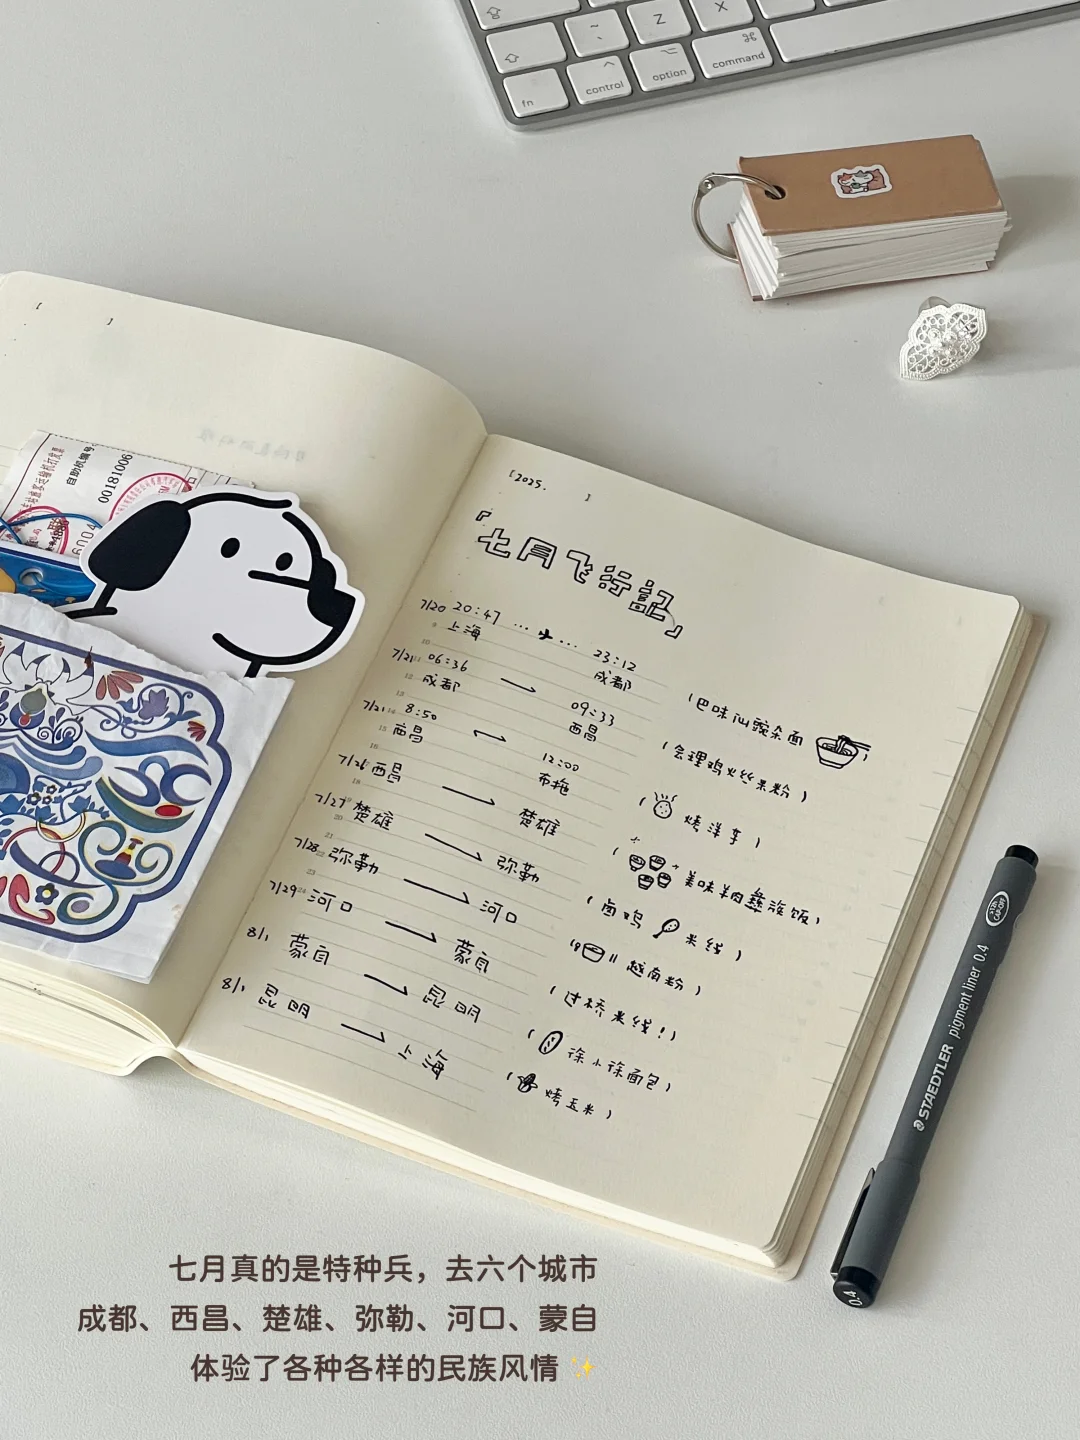 Z
X
~
`
⌘
⌥
fn
control
option
command
自助机编号
00181006
[2025.  ]
『七月飞行記』
7/20 20:47 ... ... 23:12
上海 成都
7/21 06:36 → 09:33
成都 西昌
(巴味仙豌杂面)
7/21 8:50 12:00
西昌 布拖
(会理鸡火丝米粉)
7/26 西昌 → 楚雄
(烤洋芋)
7/27 楚雄 → 弥勒
(美味羊肉彝族饭)
7/28 弥勒 → 河口
(卤鸡米线)
7/29 河口 → 蒙自
(越南粉)
8/1 蒙自 → 昆明
(过桥米线!)
8/1 昆明 → 上海
(徐小徐面包)
(烤玉米)
STAEDTLER pigment liner 0.4
0.4
七月真的是特种兵，去六个城市
成都、西昌、楚雄、弥勒、河口、蒙自
体验了各种各样的民族风情 ✨